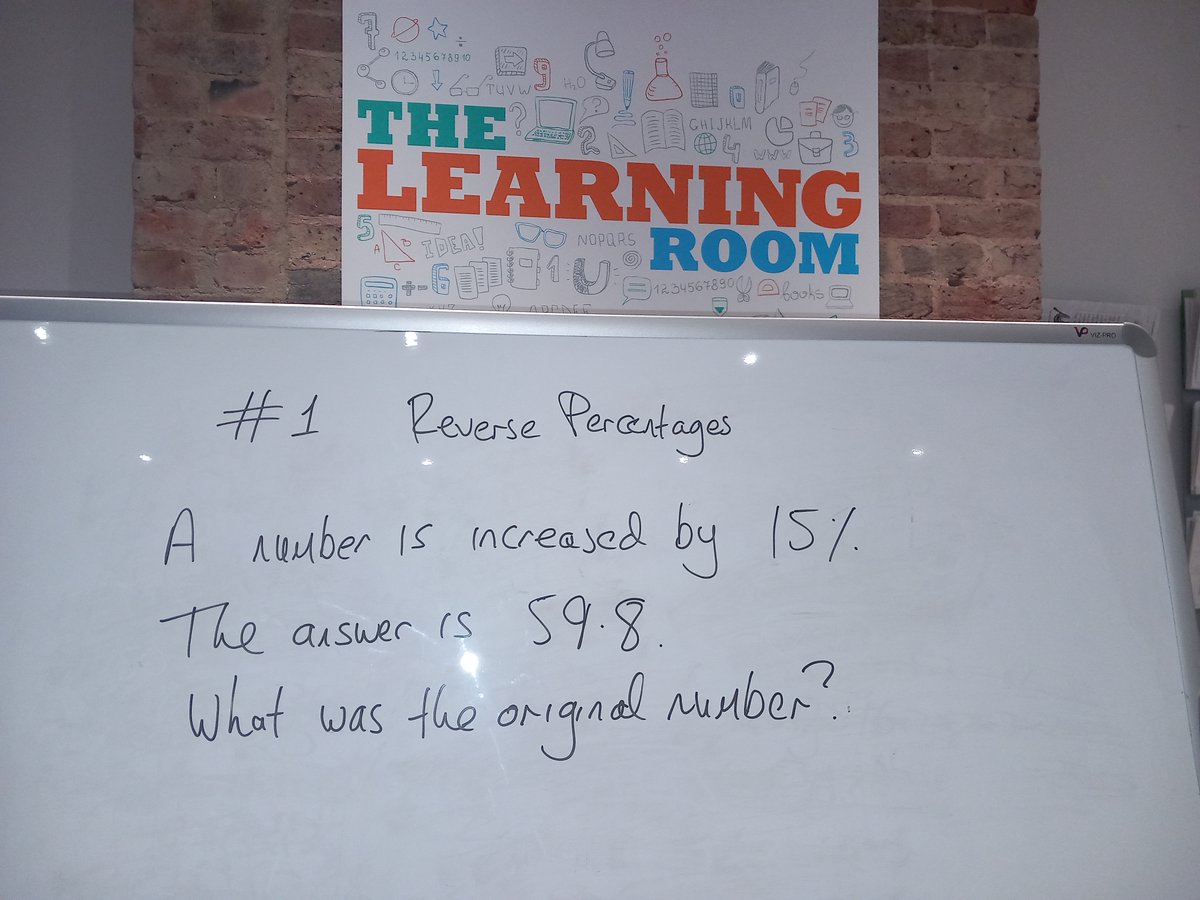 7
12345678910
TUVW
9
H₂O
THE
?
?
2
GHIJKLM
4
WWW
3
LEARNING
5
A
B
C
IDEA!
NOPQRS
ROOM
6
1
1234567890
books
ABCDEF
VP VIZ-PRO
#1 Reverse Percentages
A number is increased by 15%.
The answer is 59.8.
What was the original number?